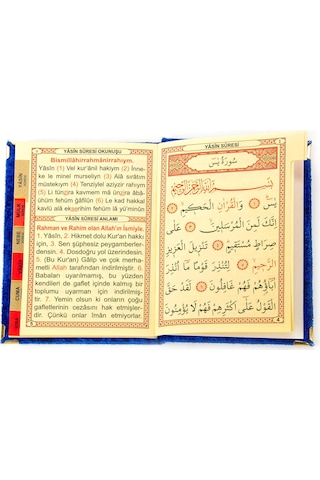 YÂSÎN SÛRESİ OKUNUŞU
Bismillâhirrahmânirrahıym.
Yâsîn (1) Vel kur'ânil hakiym (2) İnne-
ke le minel murseliyn (3) Alâ sırâtım
müstekıym (4) Tenziylel aziyzir rahıym
(5) Li tünzira kavmem mâ ünzira âbâ-
ühüm fehüm ğâfilûn (6) Le kad hakkal
kavlü alâ ekserihim fehüm lâ yü'minûn
YÂSÎN SÛRESİ ANLAMI
Rahman ve Rahîm olan Allah'ın ismiyle.
1. Yâsîn, 2. Hikmet dolu Kur'an hakkı
için, 3. Sen şüphesiz peygamberler-
densin. 4. Dosdoğru yol üzerindesin.
5. (Bu Kur'an) Gâlip ve çok merha-
metli Allah tarafından indirilmiştir. 6.
Babaları uyarılmamış, bu yüzden
kendileri de gaflet içinde kalmış bir
toplumu uyarman için indirilmiş-
tir. 7. Yemin olsun ki onların çoğu
gafletlerinin cezasını hak etmişler-
dir. Çünkü onlar îman etmiyorlar.
YÂSÎN
MÜLK
NEBE
CUMA
YÂSÎN SÛRESİ
سُورَةُ يٰسٓ
بِسْمِ اللهِ الرَّحْمٰنِ الرَّحِيمِ
يٰسٓ ﴿١﴾ وَالْقُرْاٰنِ الْحَكِيمِ ﴿٢﴾
اِنَّكَ لَمِنَ الْمُرْسَلِينَ ﴿٣﴾ عَلٰى
صِرَاطٍ مُسْتَقِيمٍ ﴿٤﴾ تَنْزِيلَ الْعَزِيزِ
الرَّحِيمِ ﴿٥﴾ لِتُنْذِرَ قَوْمًا مَٓا اُنْذِرَ
اٰبَٓاؤُهُمْ فَهُمْ غَافِلُونَ ﴿٦﴾ لَقَدْ حَقَّ
الْقَوْلُ عَلٰٓى اَكْثَرِهِمْ فَهُمْ لَا يُؤْمِنُونَ
4